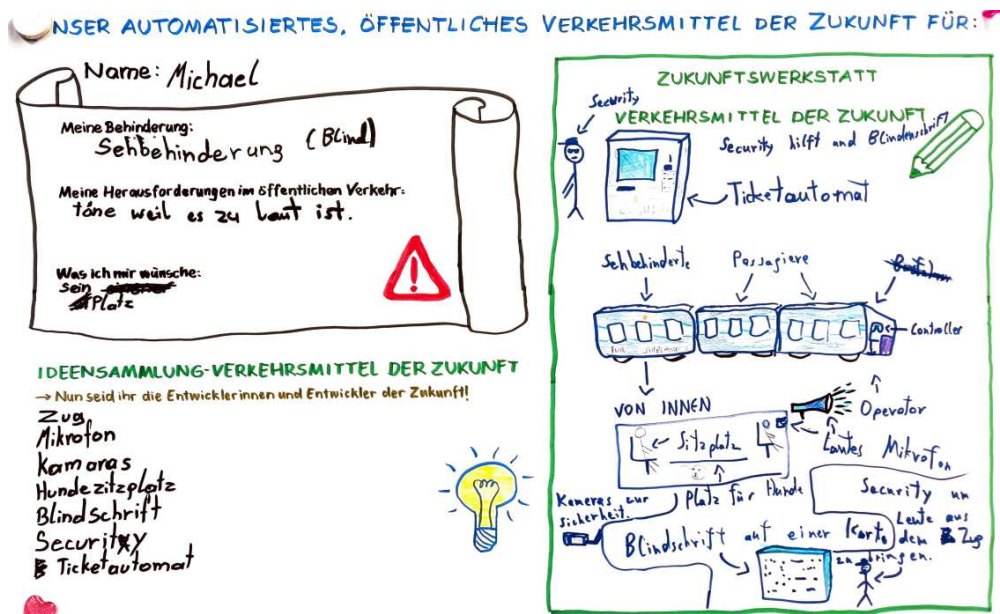 NSER AUTOMATISIERTES, ÖFFENTLICHES VERKEHRSMITTEL DER ZUKUNFT FÜR:
Name: Michael
Meine Behinderung:
Sehbehinderung (Blind)
Meine Herausforderungen im öffentlichen Verkehr:
töne weil es zu laut ist.
Was ich mir wünsche:
sein
Platz
IDEENSAMMLUNG-VERKEHRSMITTEL DER ZUKUNFT
→ Nun seid ihr die Entwicklerinnen und Entwickler der Zukunft!
Zug
Mikrofon
Kamaras
Hundezitzplatz
Blindschrift
Security
Ticketautomat
ZUKUNFTSWERKSTATT
VERKEHRSMITTEL DER ZUKUNFT
Security
Security hilft und Blindenschrift
Ticketautomat
Sehbehinderte
Passagiere
Controller
Operator
VON INNEN
Sitzplatz
Lautes Mikrofon
Platz für Hunde
Kameras zur
sicherheit.
Blindschrift auf einer Karte
Security um
Leute aus
dem Zug
zu bringen.